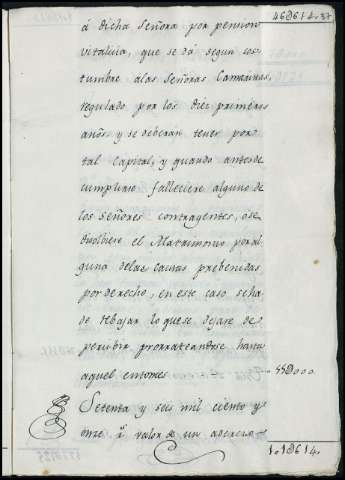 46@614..37
á dicha Señora por pencion
vitalicia, que se dá segun cos-
tumbre alas Señoras Camaristas,
regulado por los diez primeros
años, y se deberán tener por
tal capital, y quando antes de
cumplirlo falleciere alguno de
los Señores contrayentes, ó se
disolbiere el Matrimonio por al
guna delas causas prebenidas
por derecho, en este caso se ha
de rebajar lo que se dejare de
percibir prorrateandose hasta
aquel entonces
55@000.
Setenta y seis mil ciento y
once rs valor de un aderezo
1.1@614.